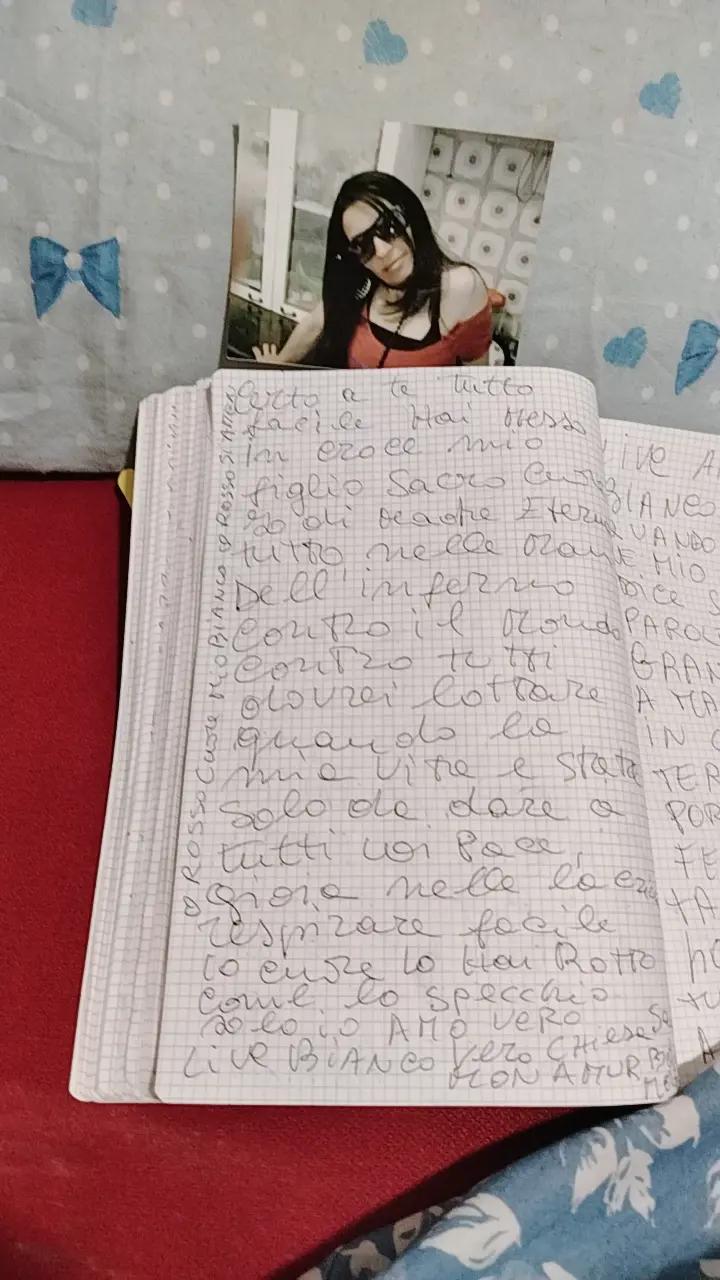 Certo a te tutto
facile Hai messo
In croce mio
figlio Sacro Cuore
so di Madre Eterna
tutto nelle mani
Dell'inferno
Contro il mondo
contro tutti
dovrei lottare
quando la
mia vita è stata
Solo da dare a
tutti voi Pace,
gioia nelle
respirare facile
io cuore lo Hai Rotto
come lo specchio
solo io AMO VERO
LIVE BIANCO Vero CHIESA
MON AMUR
O ROSSO CUORE MIO BIANCO O ROSSO
IVE A
BIANCO
MIO
DICE S
PAROL
GRAN
A MA
IN C
TER
POR
FE
TA